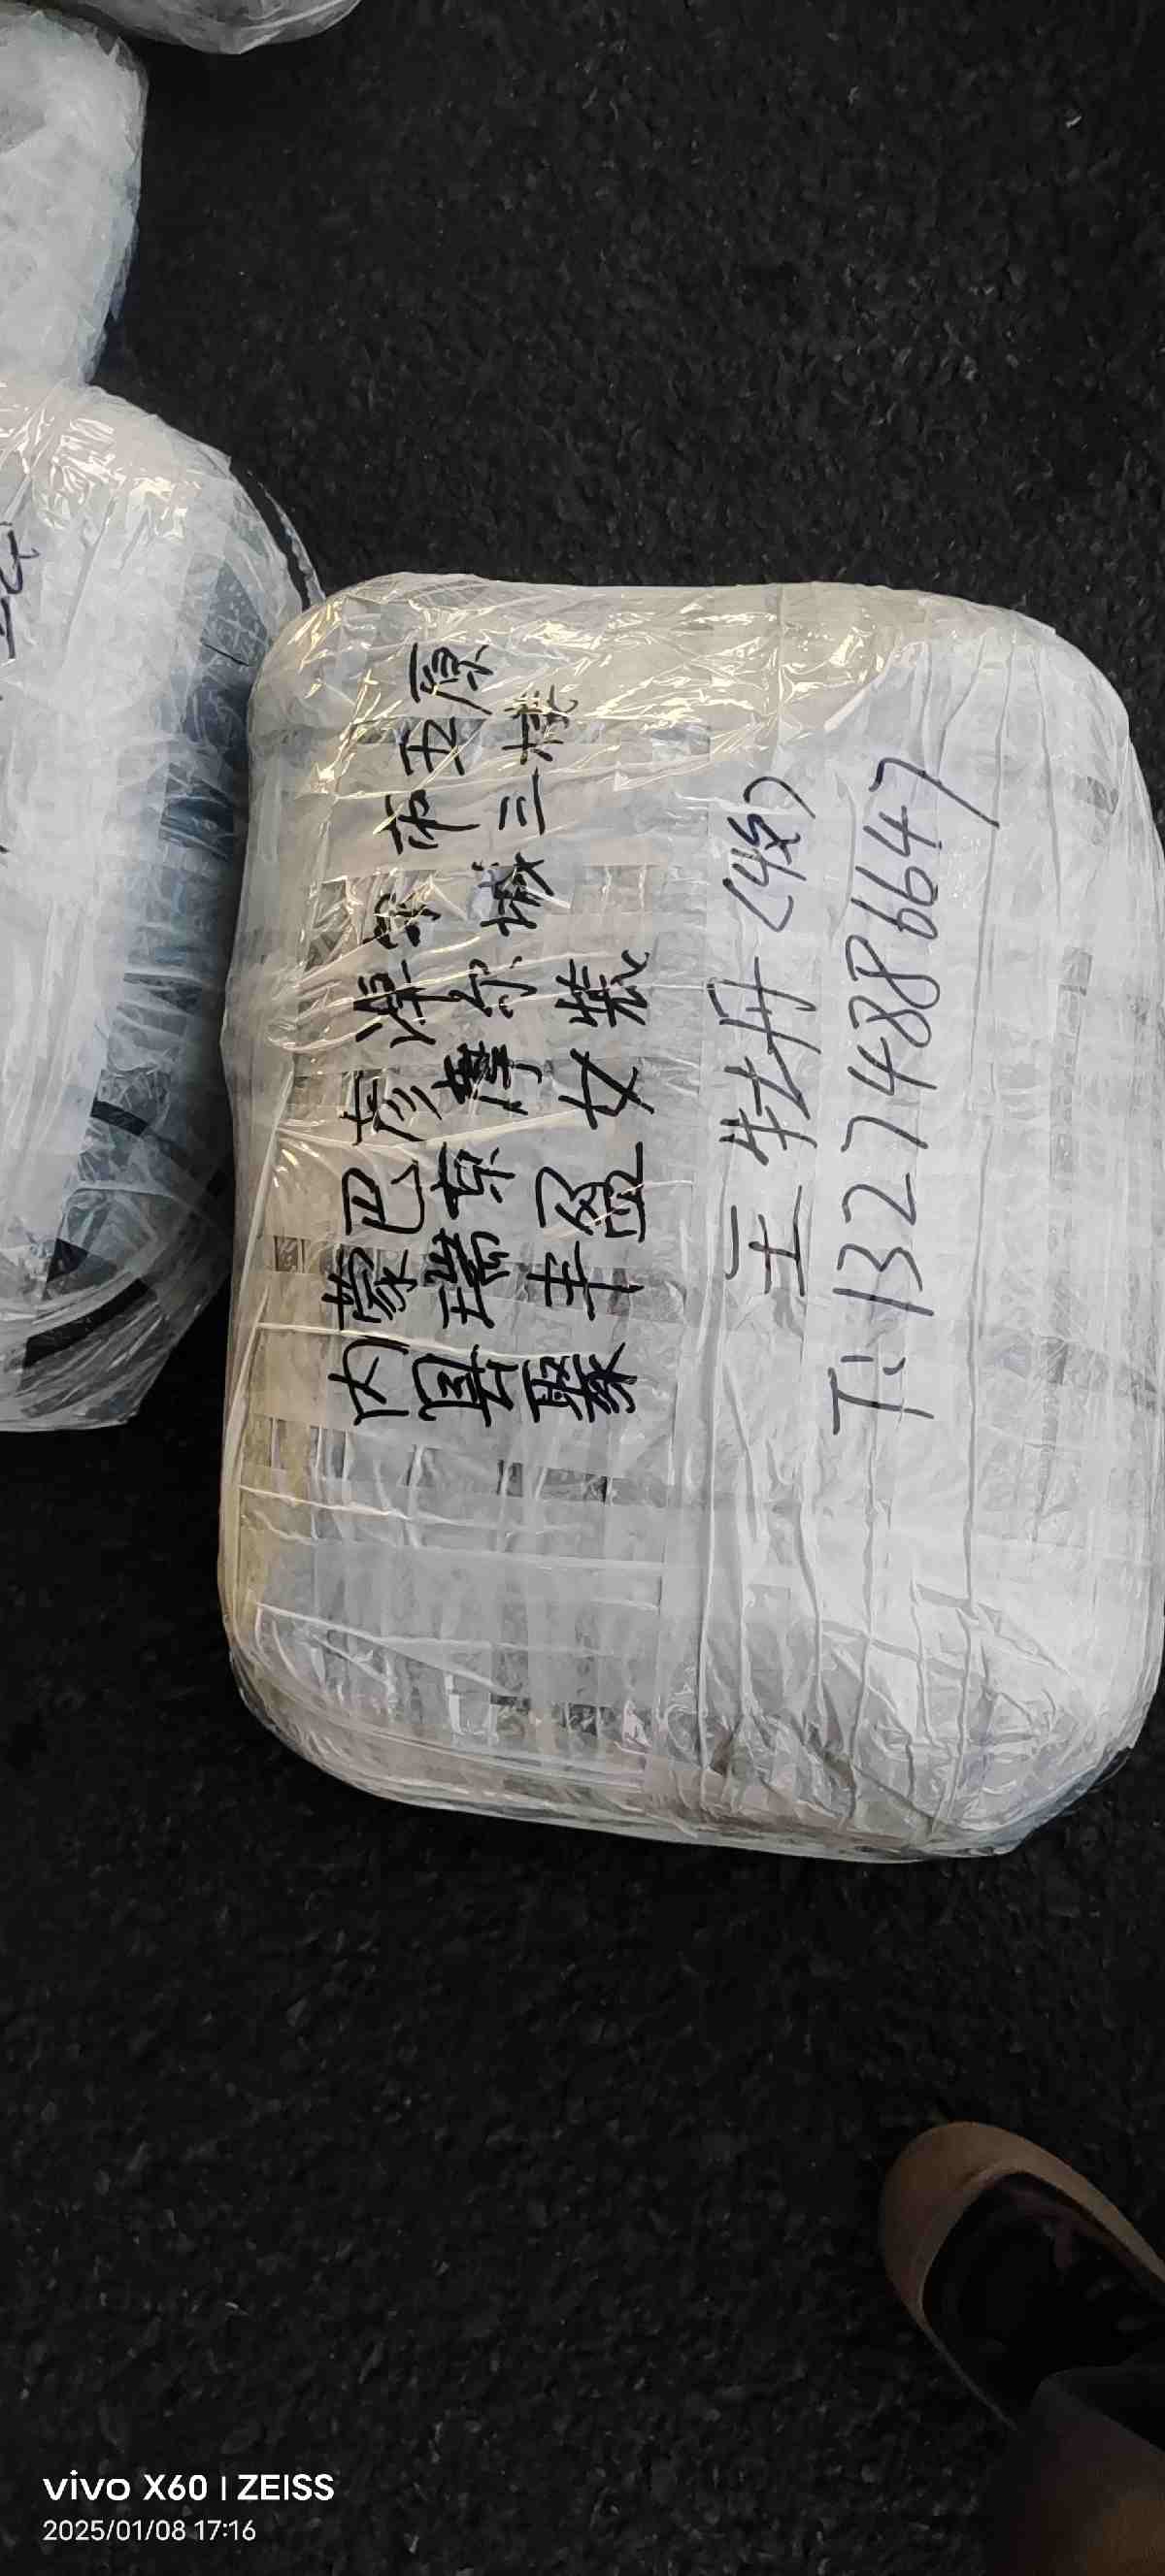 内蒙巴彦淖尔市五原
县瑞京摩尔城三楼
聚丰盈女装
王牡丹（收）
T:13274886647
vivo X60 | ZEISS
2025/01/08 17:16